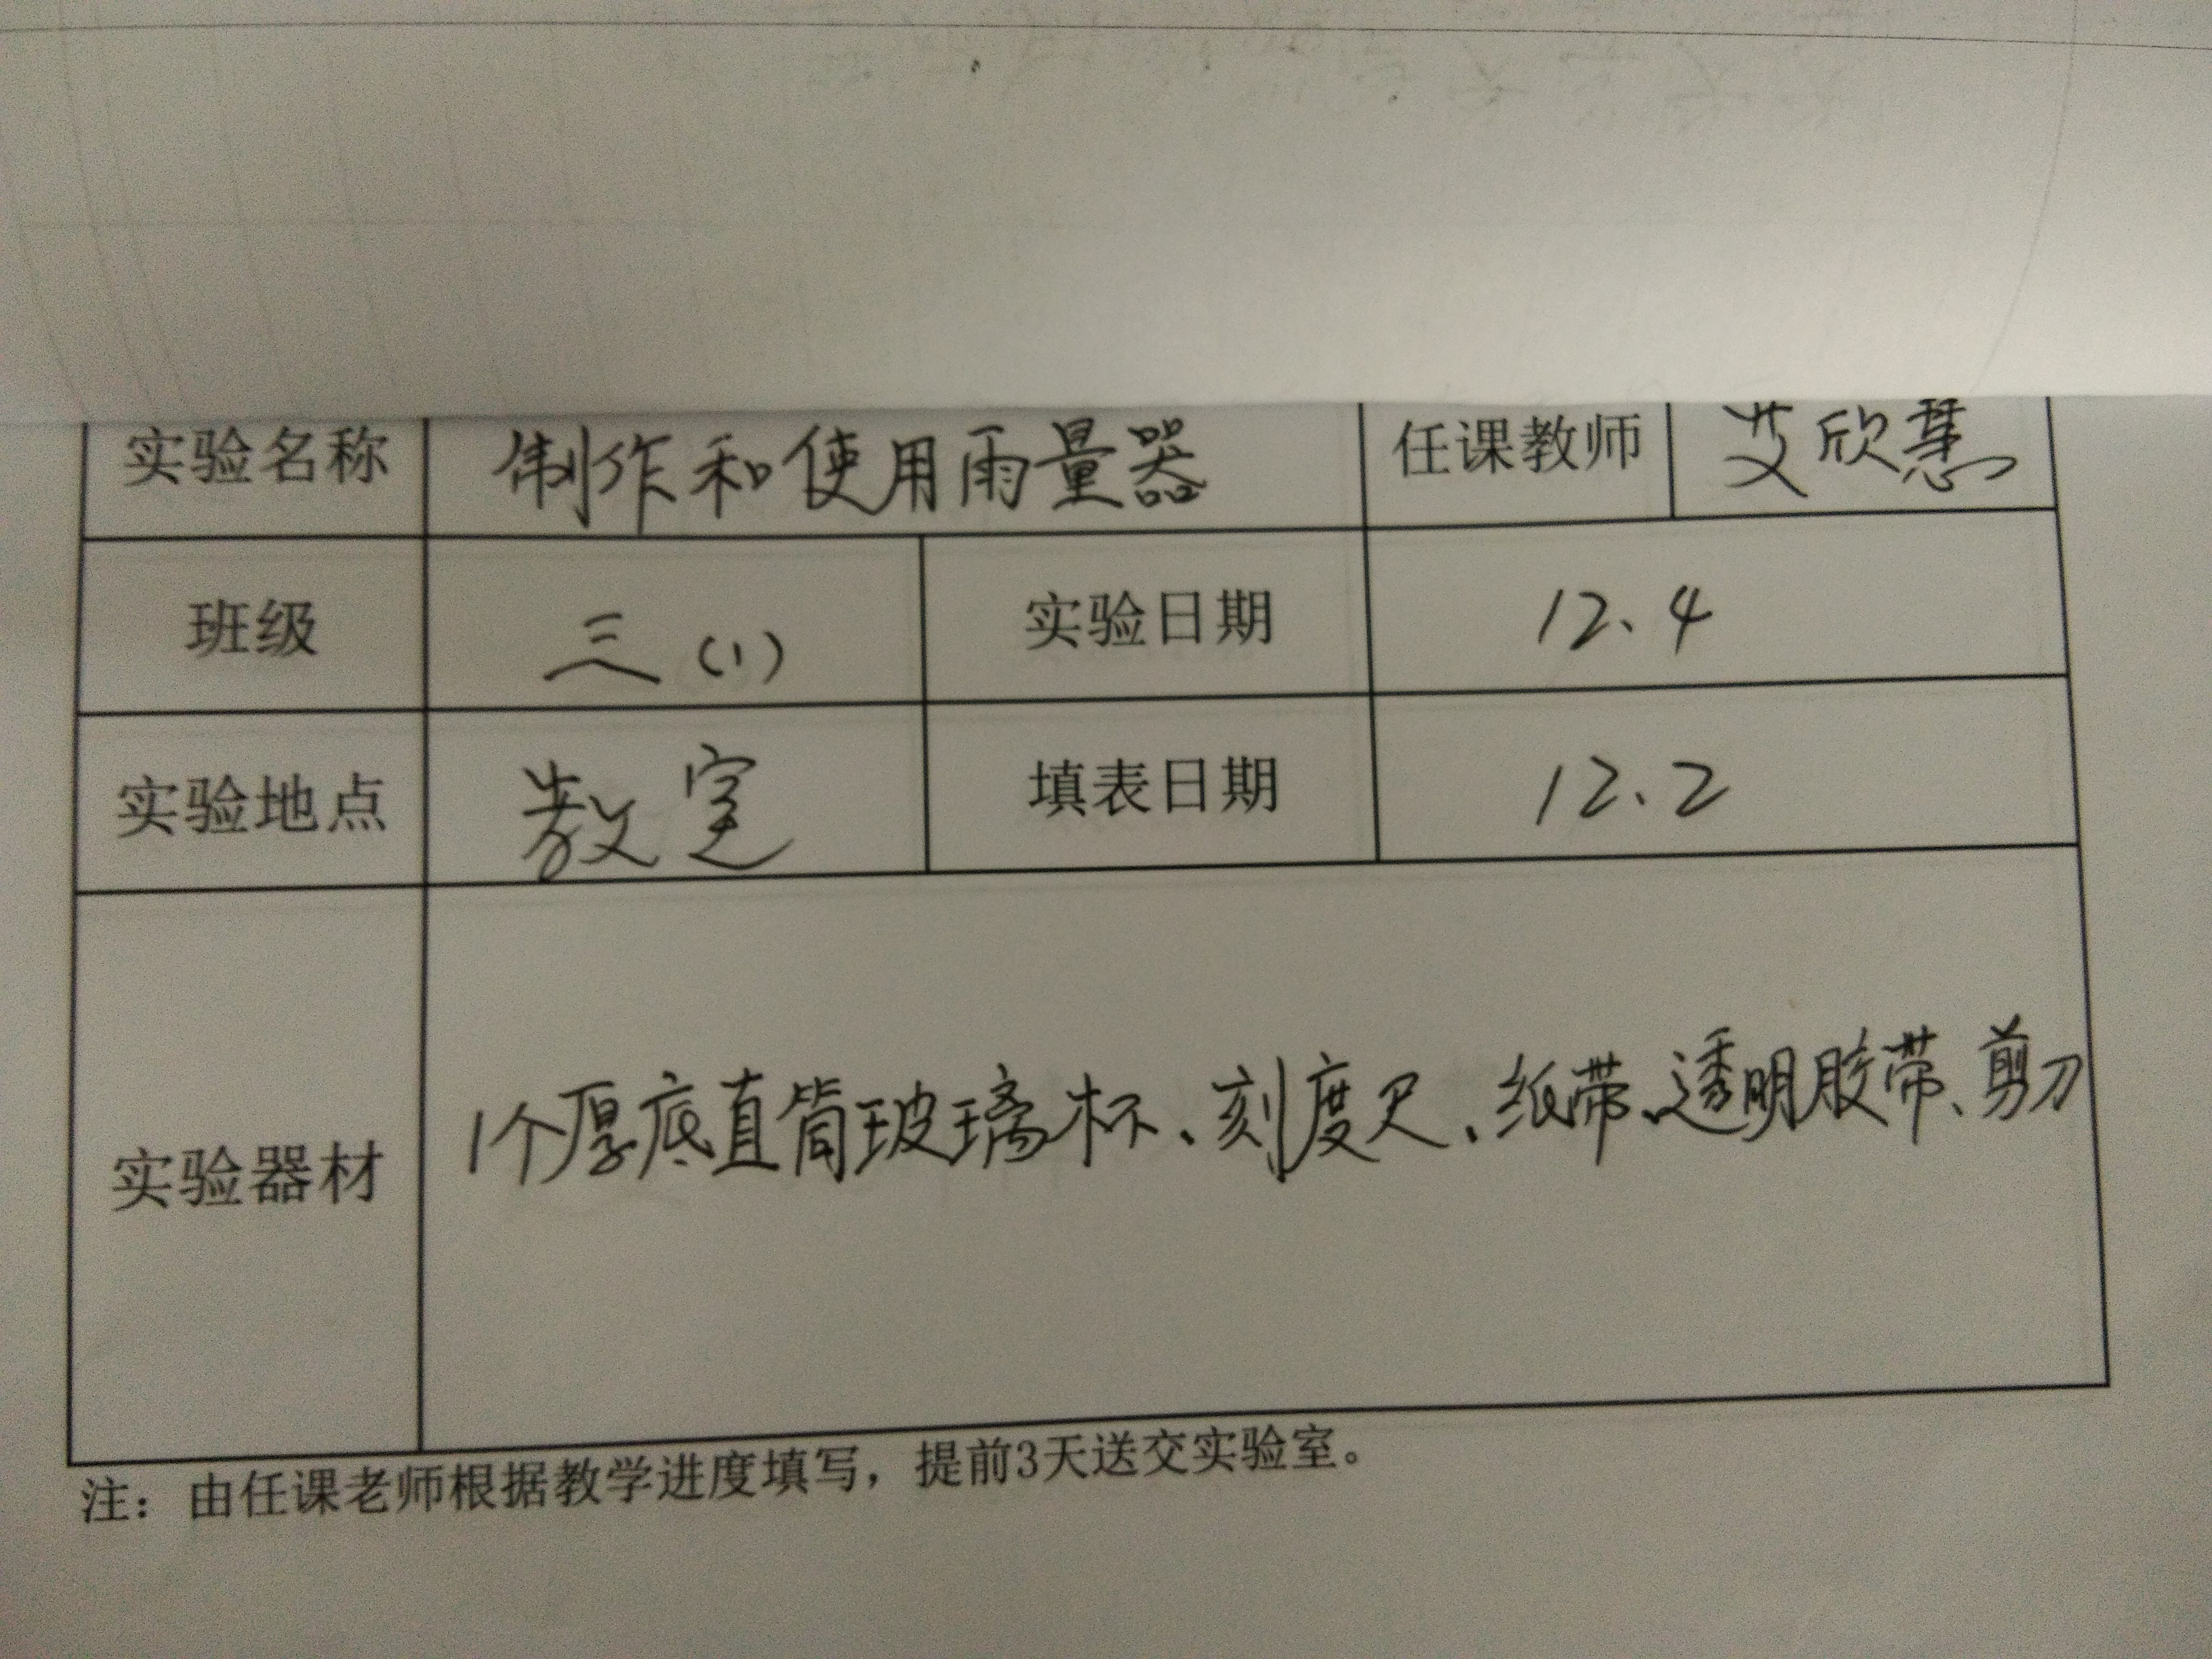 实验名称 制作和使用雨量器 任课教师 艾欣慧
班级 三(1) 实验日期 12.4
实验地点 教室 填表日期 12.2
实验器材 1个厚底直筒玻璃杯、刻度尺、纸带、透明胶带、剪刀
注：由任课老师根据教学进度填写，提前3天送交实验室。